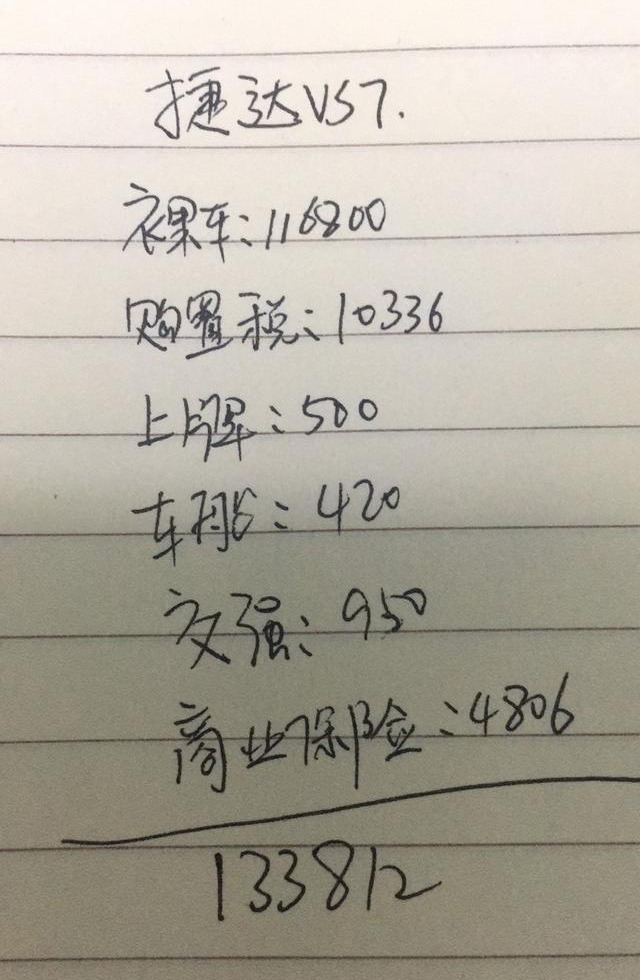 捷达VS7.
裸车:116800
购置税:10336
上牌:500
车船:420
交强:950
商业保险:4806
133812